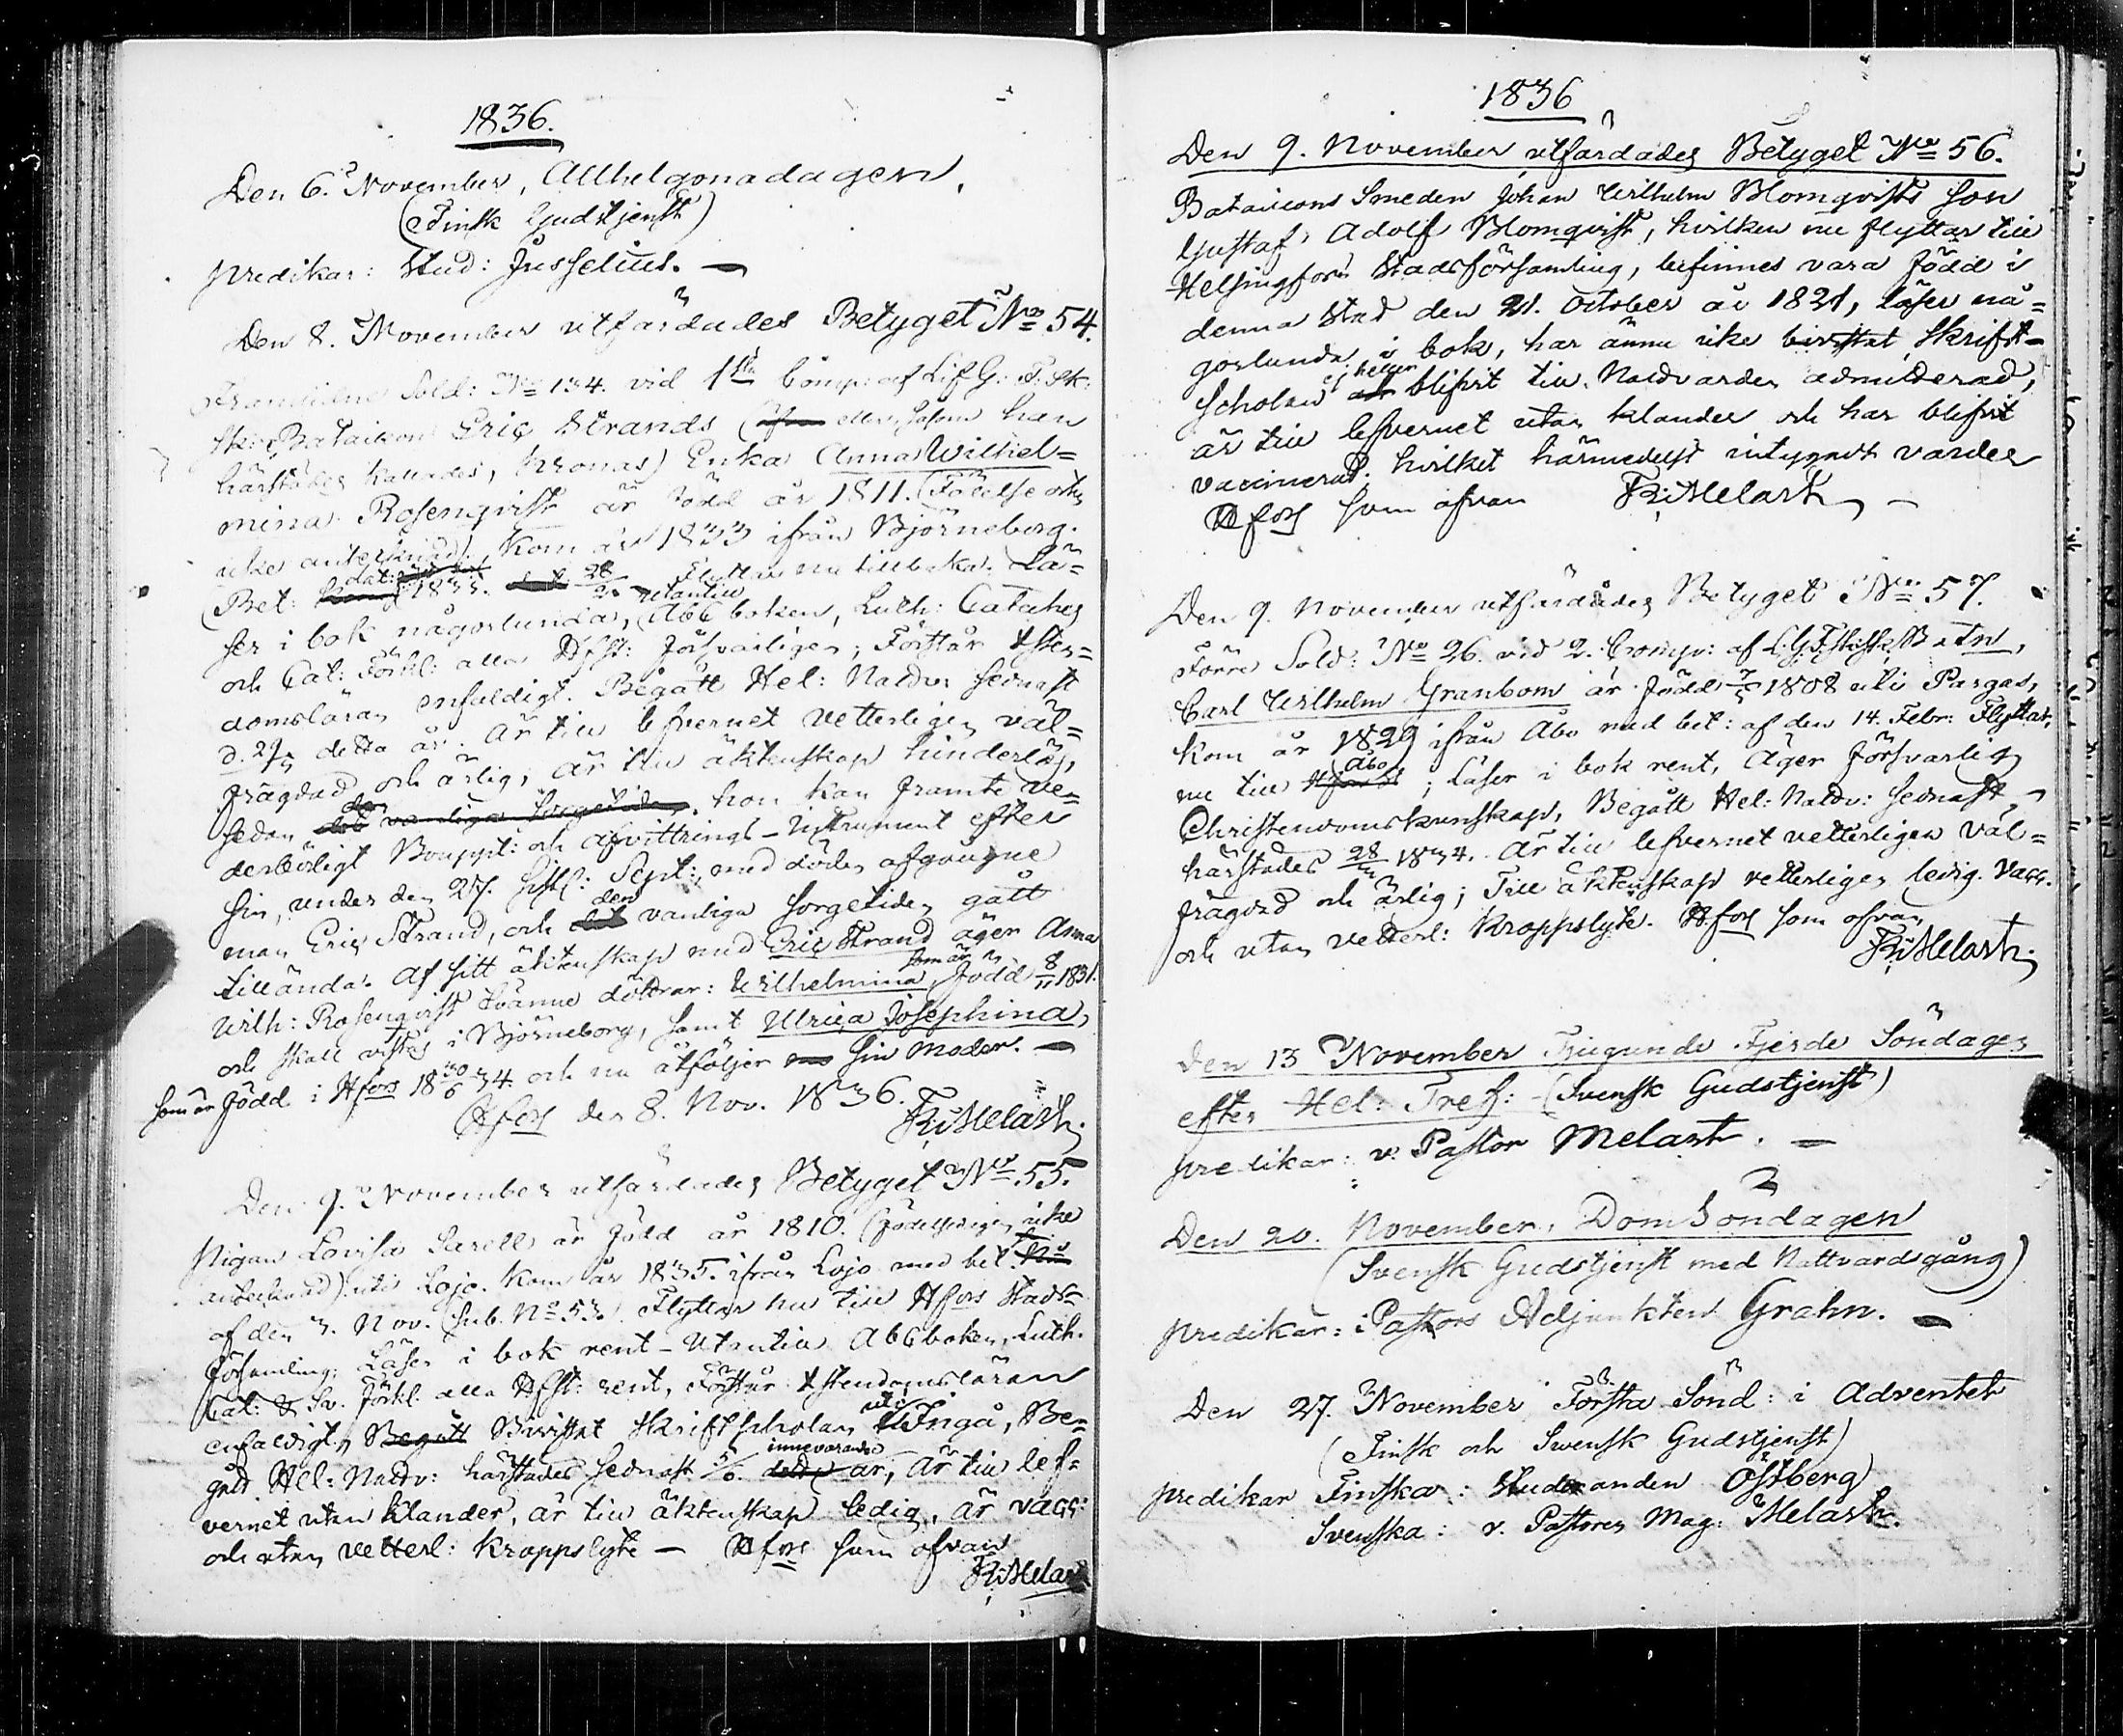 1836.
Den 6. November, Allhelgonadagen.
(Finsk Gudstjenst)
predikar: Stud: Jusselius. —
Den 8. November utfärdades Betyget No 54.
Framlidne Sold: No 134. vid 1sta Comp: af Lif G: F: Sk:
Sk: Bataillon Eric Strands ( eller, såsom han
härstädes kallades, Kronas) Enka Anna Wilhel=
mina Rosenqvist är född år 1811. (Födelseorten
icke antecknad). Kom år 1833 ifrån Björneborg.
(Bet: dat: 1833. 28/2. Flyttar nu tillbaka. Lä=
ser i bok någorlunda, utantill Abc boken, Luth: Cataches
och Cat: Förkl: alla Hfst: försvarligen; Förstår Xsten=
domsläran enfaldigt. Begått Hel: Nattv: sednast
d. 27/3 detta år. Är till lefvernet vetterligen väl=
frägdad och ärlig; är till äktenskap hinderlös,
sedan den vanliga sorgetiden, hon kan framte ve=
derbörligt Bouppt: och Afvittrings-Instrument efter
sin, under den 27. sistl: Sept:, med döden afgångne
man Eric Strand, och den vanliga sorgetiden gått
tillända. Af sitt äktenskap med Eric Strand äger Anna
Wilh: Rosenqvist tvänne döttrar: Wilhelmina, som är född 8/11 1831.
och skall vistas i Björneborg, samt Ulrica Josephina,
som är född i Hfors 18 30/6 34. och nu åtföljer sin moder. —
Hfors den 8. Nov. 1836.
Fr: Melart.
Den 9. November utfärdades Betyget No 55.
Pigan Lovisa Sarell är född år 1810. (födelsedagen icke
antecknad) uti Lojo. Kom år 1835. ifrån Lojo med bet. No
af den 3. Nov. (sub. No 53.) Flyttar nu till Hfors Stads=
församling; Läser i bok rent - Utantill Abcboken, Luth.
Cat: & Sv. Förkl: alla Hfst: rent, Förstår Xstendomsläran
enfaldigt, Begått Bivistat Skriftscholan uti Ingå, Be=
gått Hel: Nattv: härstädes sednast 5/6. detta innevarande år, Är till lef=
vernet utan klander, är till äktenskap ledig, är vacc:
och utan vetterl: kroppslyte — Hfors som ofvan
Fr: Melart
1836
Den 9. November utfärdades Betyget No 56.
Bataillons Smeden Johan Wilhelm Blomqvists son
Gustaf Adolf Blomqvist, hvilken nu flyttar till
Helsingfors Stadsförsamling, befinnes vara född i
denna Stad den 21. October år 1821, läser nå=
gorlunda i bok, har ännu icke bivistat Skrift-
scholan ej heller blifvit till Nattvarden admitterad,
är till lefvernet utan klander och har blifvit
vaccinerad; hvilket härmedelst intygadt varder
Hfors som ofvan Fr: Melart —
Den 9. November utfärdades Betyget No 57.
Förre Sold: No 26. vid 2. Comp: af L.G.F. Sk. Sk. Batn,
Carl Wilhelm Granbom är född 7/5 1808 uti Pargas,
kom år 1829 ifrån Åbo med bet: af den 14. Febr: Flyttar
nu till Åbo; Läser i bok rent, Äger försvarlig
Christendomskunskap, Begått Hel: Nattv: sednast
härstädes 28/ 1834. Är till lefvernet vetterligen väl=
frägdad och ärlig; Till äktenskap vetterligen ledig. Vacc.
och utan vetterl: Kroppslyte. Hfors som ofvan
Fr: Melart.
Den 13 November Tjugunde Fjerde Söndagen
efter Hel: Tref: - (Svensk Gudstjenst)
predikar: v. Pastor Melart. —
Den 20. November, DomSöndagen
(Svensk Gudstjenst med Nattvardsgång)
predikar: Pastors Adjunkten Grahn. —
Den 27. November Första Sönd: i Adventet
(Finsk och Svensk Gudstjenst)
predikar Finska: Studeranden Östberg
Svenska: v. Pastoren Mag: Melart.